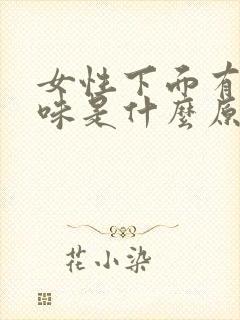 女性下而有
味是什麼原
花小染